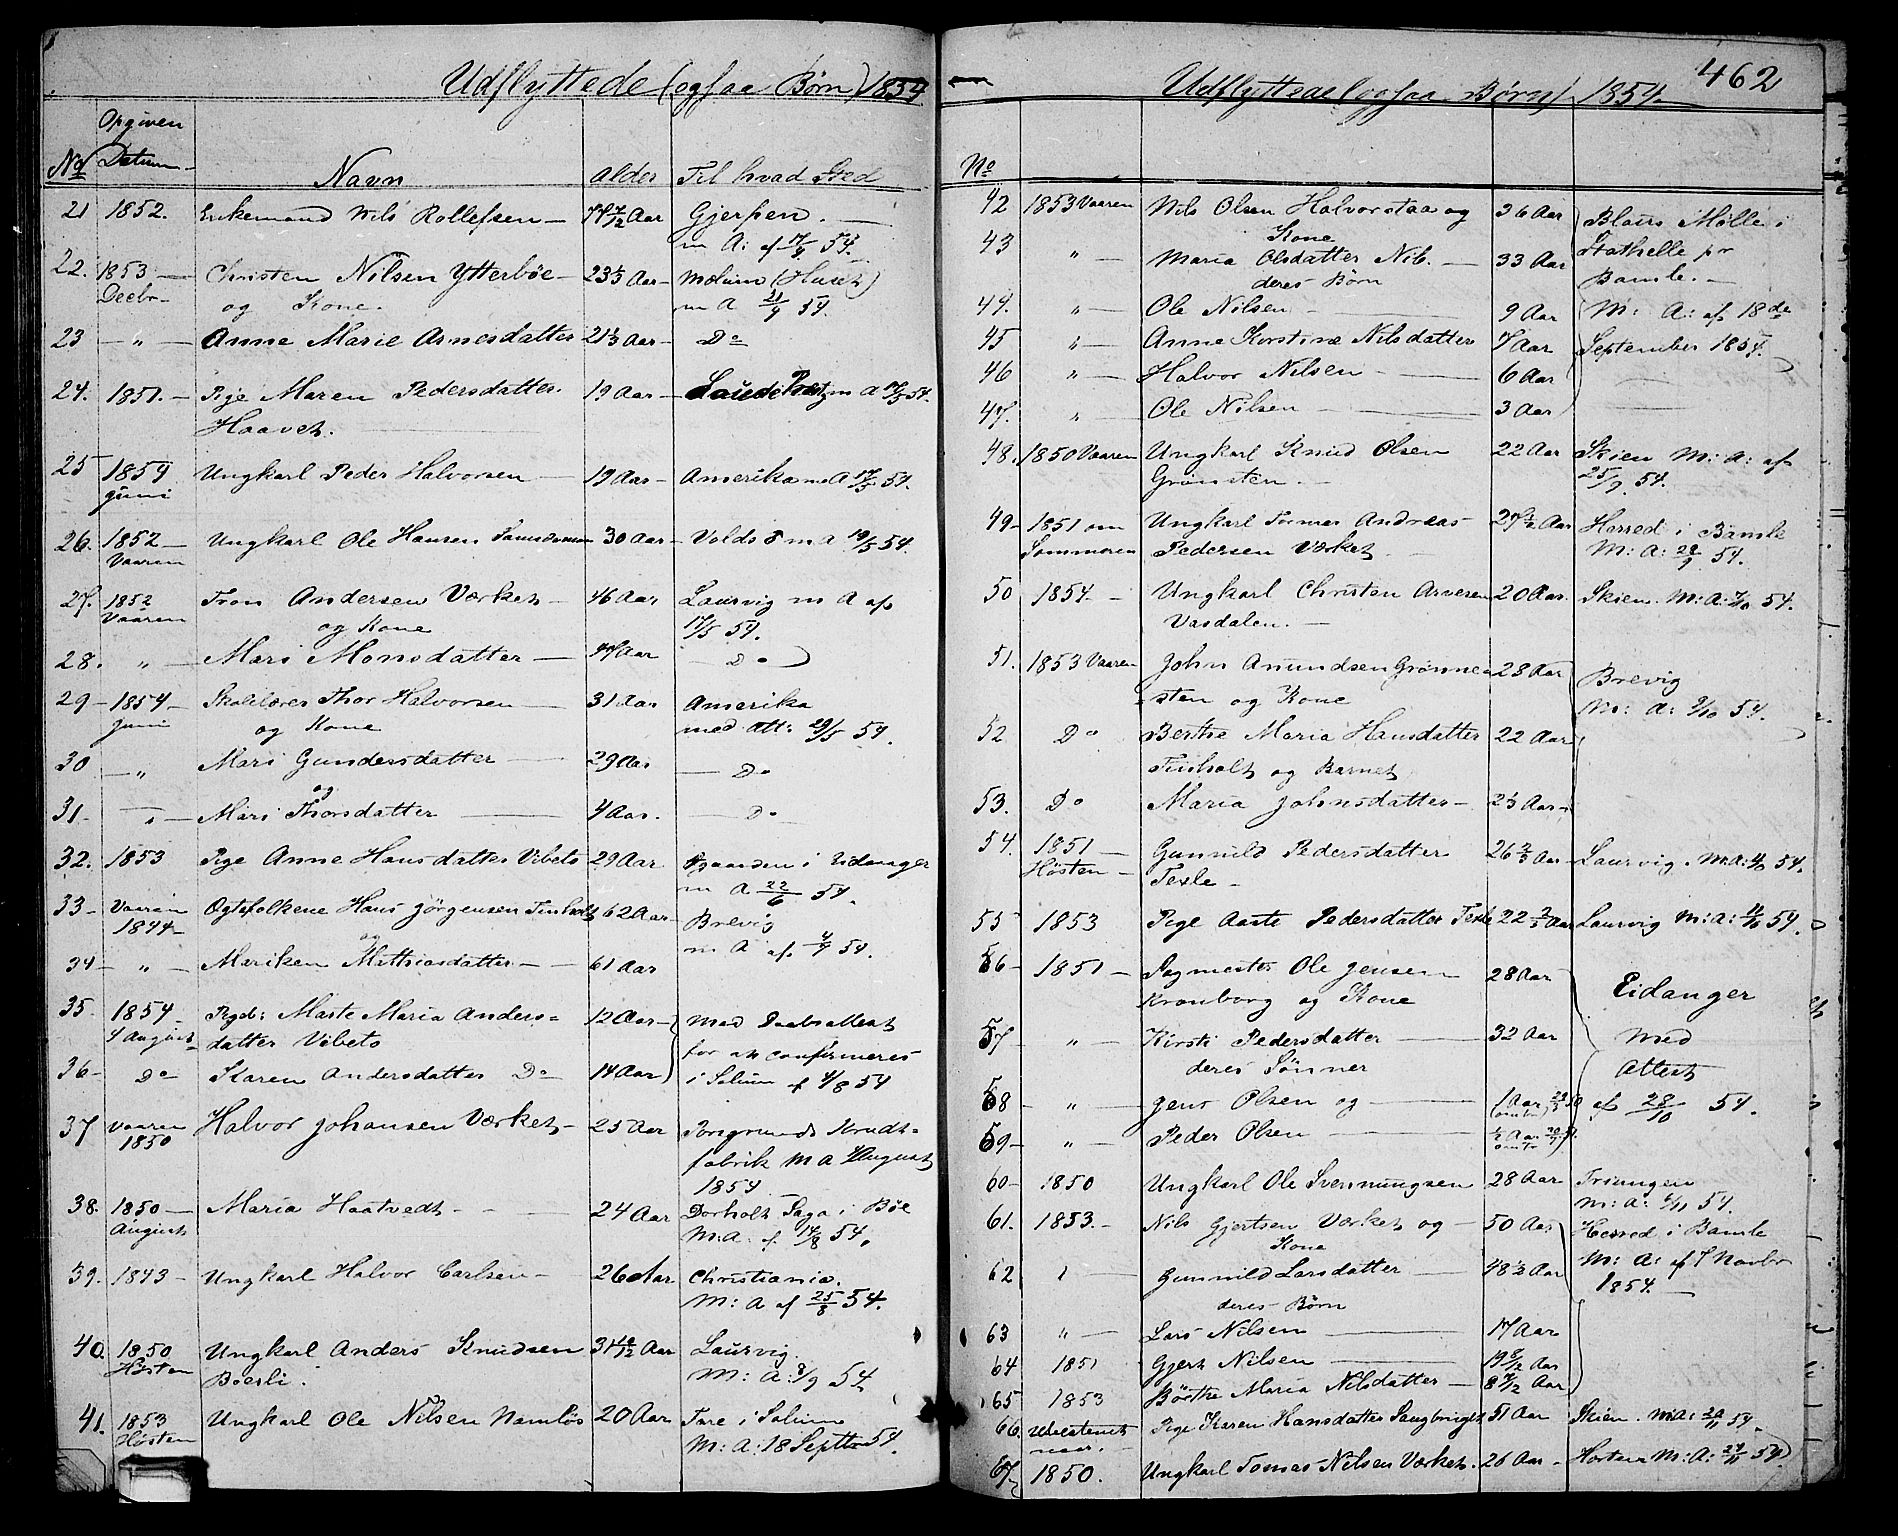 Udflyttede (ogsaa Børn) 1854
Opgiven
No Datum Navn Alder Til hvad Sted
21 1852. Enkemand Nils Rollefsen — 77 7/12 Aar Gjerpen. —
m A: af 54.
22. 1853 — Christen Nilsen Ytterbøe — 23 1/3 Aar —
Decbr — og Kone. m A 21/4 54.
23 — " — Anne Marie Arnesdatter 21 1/3 Aar — Do
24. 1851. — Pige Maren Pedersdatter. 19 Aar — m A 17/5 54.
Haavet.
25 1854 Ungkarl Peder Halvorsen — 19 Aar — Amerika m A 17/5 54.
Juni
26. 1852 — Ungkarl Ole Hansen 30 Aar — m A 19/5 54.
Vaaren
27. 1852 Tron Andersen Værket — 46 Aar Laurvig m A af
Vaaren og Kone 17/5 54.
28. " — Mari Monsdatter — 47 Aar — Do
29 — 1854 — Skolelærer Thor Halvorsen — 31 Aar Amerika
Juni og Kone med Att: 29/5 54.
30 — " Mari Gundersdatter — 29 Aar — Do
og
31 — " — Mari Thorsdatter — 4 Aar. — Do
32. 1853 Pige Anne Hansdatter Vibeto 29 Aar i Eidanger
m A 22/6 54.
33 — Vaaren Ægtefolkene Hans Jørgensen Tinholt 62 Aar — Brevig
1844 — og m A af 4/7 54.
34 — " — Mariken Mathiasdatter — 61 Aar
35. 1854 — Pigeb: Marte Maria Anders= 12 Aar — med Daabsattest
4 August — datter Vibeto for at confirmeres
36 — Do — Karen Andersdatter Do — 14 Aar i Solum af 4/8 54
37 Vaaren Halvor Johansen Værket — 25 Aar Porsgrunds Krudt=
1850 fabrik m A August
1854
38. 1850 — Maria Haatvedt — 24 Aar Dorholt Saga i Bøe
August M: A: af 14/8 54.
39. 1843 — Ungkarl Halvor Carlsen — 26 Aar Christiania.
M: A af 25/8 54.
40. 1850 Ungkarl Anders Knudsen 31 Aar Laurvig.
Høsten Boerli. M: A: 8/9 54.
41. 1853 Ungkarl Ole Nilsen Namløs 20 Aar i Solum
Høsten M: A: 18 Septbr 54.
462
Udflyttede (ogsaa Børn) 1854.
No
42 1853 Vaaren Nils Olsen Halvorstaa og 36 Aar Blairs Mølle i
Kone Stathelle pr
43 " — Maria Olsdatter Nib. — 33 Aar Bamle. —
deres Børn
44. " — Ole Nilsen — 9 Aar M: A: af 18de
45 " — Anne Kirstine Nilsdatter 7 Aar September 1854.
46 " — Halvor Nilsen — 6 Aar
47. " Ole Nilsen — 3 Aar
48. 1850 Vaaren Ungkarl Knud Olsen 22 Aar Skien M: A: af
Grønsten. — 25/9. 54.
49 — 1851 om Ungkarl Tomas Andreas — 27 1/2 Aar Herred i Bamle
Sommeren Pedersen Værket — M: A: 28/9 54.
50 1854. — Ungkarl Christen Arvesen 20 Aar. Skien. M: A: /10 54.
Vasdalen. —
51. 1853 Vaaren John Amundsen Grønne 28 Aar Brevig
sten og Kone M: A: 9/10 54.
52 Do Berthe Maria Hansdatter 22 Aar
Tinholt og Barnet
53. Do Maria Johnsdatter — 2 1/3 Aar
54. 1851 — Gunnild Pedersdatter 26 2/3 Aar — Laurvig. M: A: 54.
Høsten — Texle —
55 1853 Pige Aaste Pedersdatter Texle 22 2/3 Aar Laurvig M: A: 54.
56 — 1851 — Ole Jensen 28 Aar Eidanger
Kronborg og Kone
57 " — Kirsti Pedersdatter — 32 Aar med
deres Sønner Attest
58 — " — Jens Olsen og — 1 Aar af 28/10 54.
59 — " — Peder Olsen — 1/2 Aar
60 — 1850 Ungkarl Ole Svennungsen 28 Aar
M: A: 6/11 54.
61. 1853. — Nils Gjertsen Værket og — 50 Aar Herred i Bamle
Kone M: A: af 7 Novbr
62 " — Gunnild Larsdatter — 48 1/2 Aar 1854. —
deres Børn
63 " — Lars Nilsen — 17 Aar
64 1851 Gjert Nilsen — 19 8/12 Aar
65 1853 Børthe Maria Nilsdatter — 8 7/12 Aar
66. Pige Karen Hansdatter 51 Aar Skien. M: A: 20/11 54.
67 1850. Ungkarl Tomas Nilsen Værket. 26 Aar — Horten M: A: 27/11 54